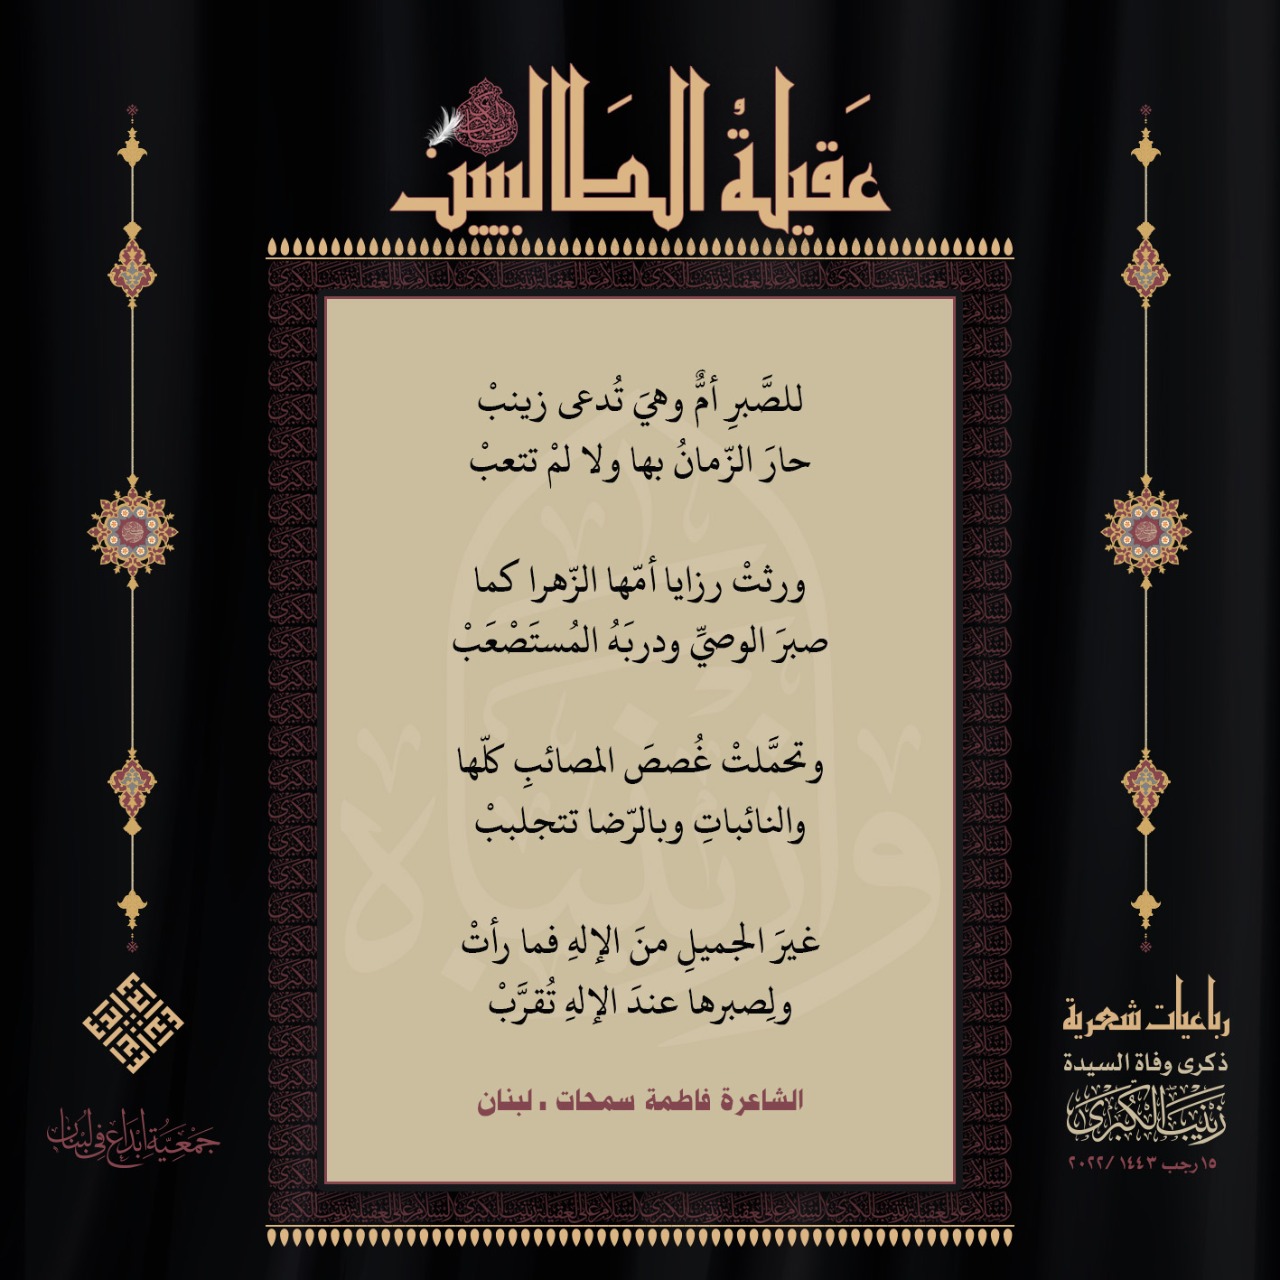 عَقيلةُ الطَالبيين
للصَّبرِ أمٌّ وهيَ تُدعى زينبْ
حارَ الزّمانُ بها ولا لمْ تتعبْ
ورثتْ رزايا أمّها الزّهرا كما
صبرَ الوصيِّ ودربَهُ المُستَصْعَبْ
وتحمَّلتْ غُصصَ المصائبِ كلّها
والنائباتِ وبالرّضا تتجلببْ
غيرَ الجميلِ منَ الإلهِ فما رأتْ
ولِصبرها عندَ الإلهِ تُقرَّبْ
الشاعرة فاطمة سمحات . لبنان
رباعيات شعرية
ذكرى وفاة السيدة
زَيْنَبَ الْكُبْرَى
١٥ رجب ١٤٤٣ /٢٠٢٢
جَمْعِيَّةُ إِبْدَاع فِي لُبْنَان
وا زينباه